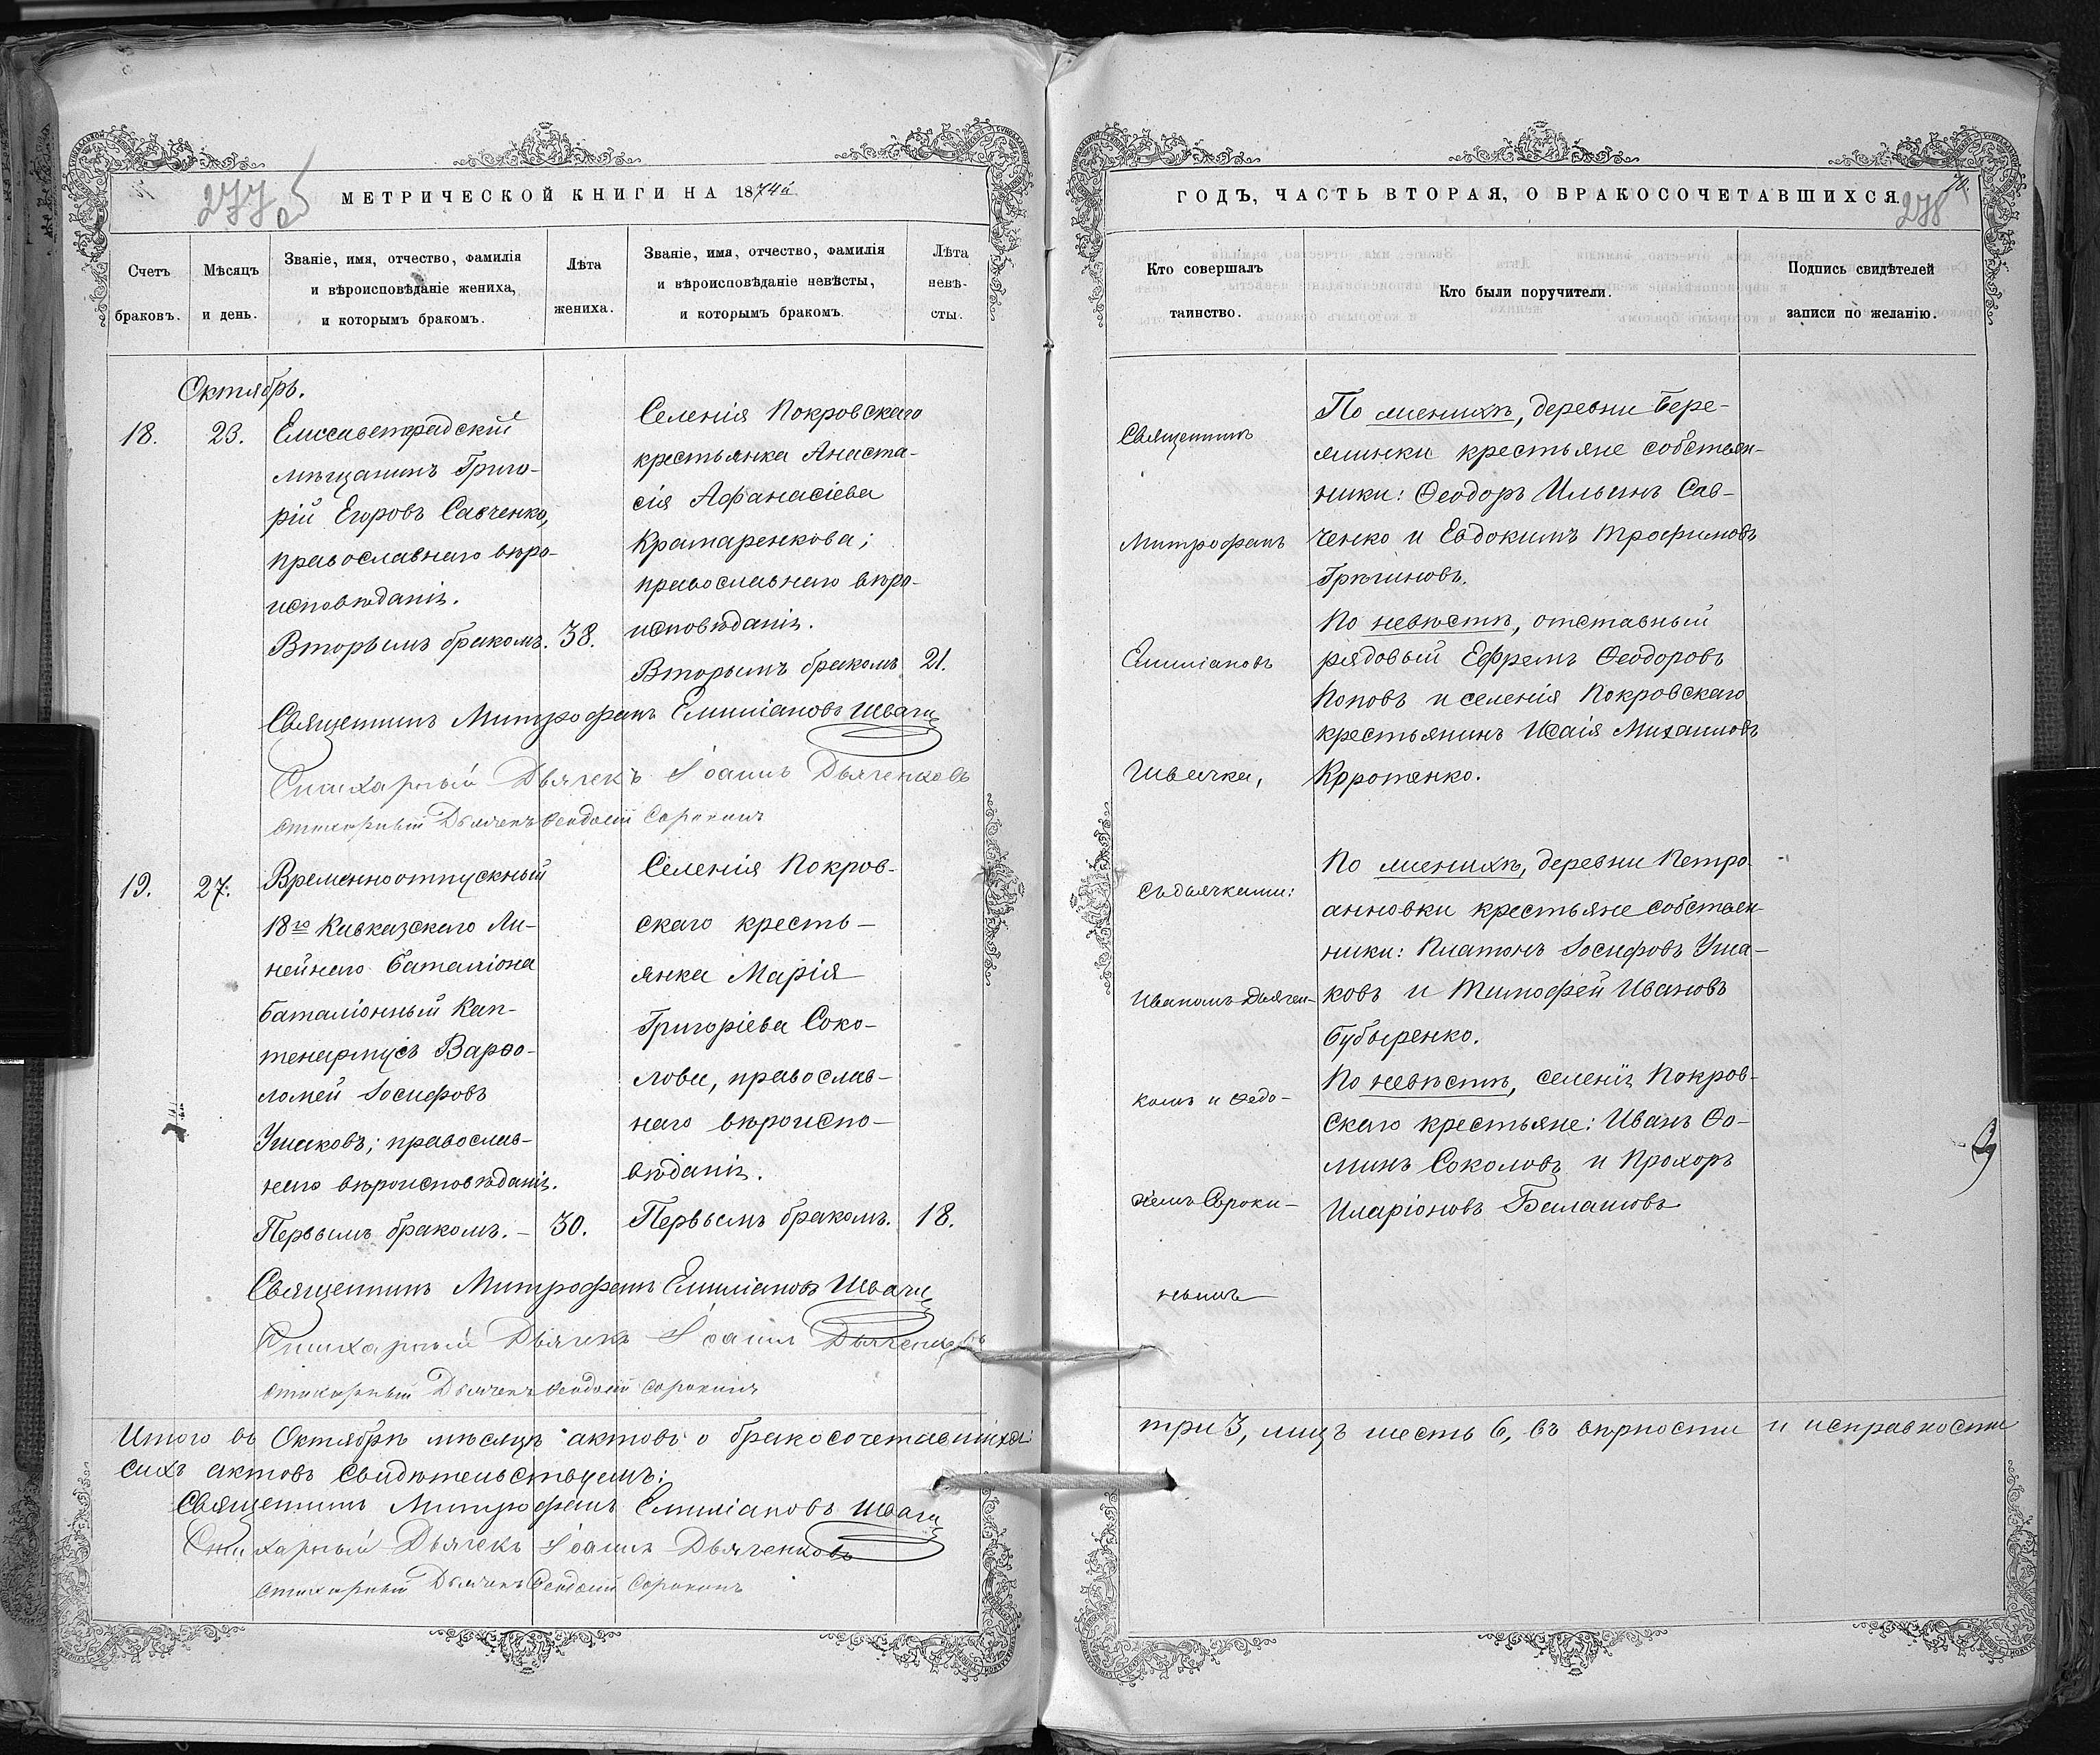 277 об
МЕТРИЧЕСКОЙ КНИГИ НА 1874й
Счетъ
браковъ.
Мѣсяцъ
и день.
Званіе, имя, отчество, фамилія
и вѣроисповѣданіе жениха,
и которымъ бракомъ.
Лѣта
жениха.
Званіе, имя, отчество, фамилія
и вѣроисповѣданіе невѣсты,
и которымъ бракомъ.
Лѣта
невѣ-
сты.
Октябрь.
18.
23.
Елисаветградскій
мѣщанинъ Григо-
рій Егоровъ Савченко,
православнаго вѣро-
исповѣданія.
Вторымъ бракомъ.
38.
Селенія Покровскаго
крестьянка Анаста-
сія Афанасіева
Крамаренкова;
православнаго вѣро-
исповѣданія.
Вторымъ бракомъ
21.
Священникъ Митрофанъ Емиліановъ Швачка
Стихарный Дьячекъ Іоаннъ Дьяченковъ
стихарный Дьячекъ Ѳеодосій Сорокинъ
19.
27.
Временноотпускный
18го Кавказскаго Ли-
нейнаго баталіона
баталіонный Кап-
тенармусъ Варѳо-
ломей Іосифовъ
Ушаковъ; православ-
наго вѣроисповѣданія.
Первымъ бракомъ. –
30.
Селенія Покров-
скаго кресть-
янка Марія
Григоріева Соко-
лова, православ-
наго вѣроиспо-
вѣданія.
Первымъ бракомъ.
18.
Священникъ Митрофанъ Емиліановъ Швачка
Стихарный Дьячекъ Іоаннъ Дьяченковъ
стихарный Дьячекъ Ѳеодосій Сорокинъ
Итого въ Октябрѣ мѣсяцѣ актовъ о бракосочетавшихся
сихъ актовъ свидѣтельствуемъ:
Священникъ Митрофанъ Емиліановъ Швачка
Стихарный Дьячекъ Іоаннъ Дьяченковъ
стихарный Дьячекъ Ѳеодосій Сорокинъ
ГОДЪ, ЧАСТЬ ВТОРАЯ, О БРАКОСОЧЕТАВШИХСЯ.
70.
278
Кто совершалъ
таинство.
Кто были поручители.
Подпись свидѣтелей
записи по желанію.
Священникъ
Митрофанъ
Емиліановъ
Швачка,
съ дьячками:
Иваномъ Дьячен-
комъ и Ѳедо-
сіемъ Сороки-
нымъ
По женихѣ, деревни Бере-
жинки крестьяне собствен-
ники: Ѳеодоръ Ильинъ Сав-
ченко и Евдокимъ Трофимовъ
Гречиновъ.
По невѣстѣ, отставный
рядовый Ефремъ Ѳеодоровъ
Поповъ и селенія Покровскаго
крестьянинъ Исаія Михаиловъ
Коротенко.
По женихѣ, деревни Петро
анновки крестьяне собствен-
ники: Платонъ Іосифовъ Уша-
ковъ и Тимофей Ивановъ
Бубыренко.
По невѣстѣ, селенія Покров-
скаго крестьяне: Иванъ Ѳо-
минъ Соколовъ и Прохоръ
Иларіоновъ Балашовъ
три 3, лицъ шесть 6, въ вѣрности и исправности